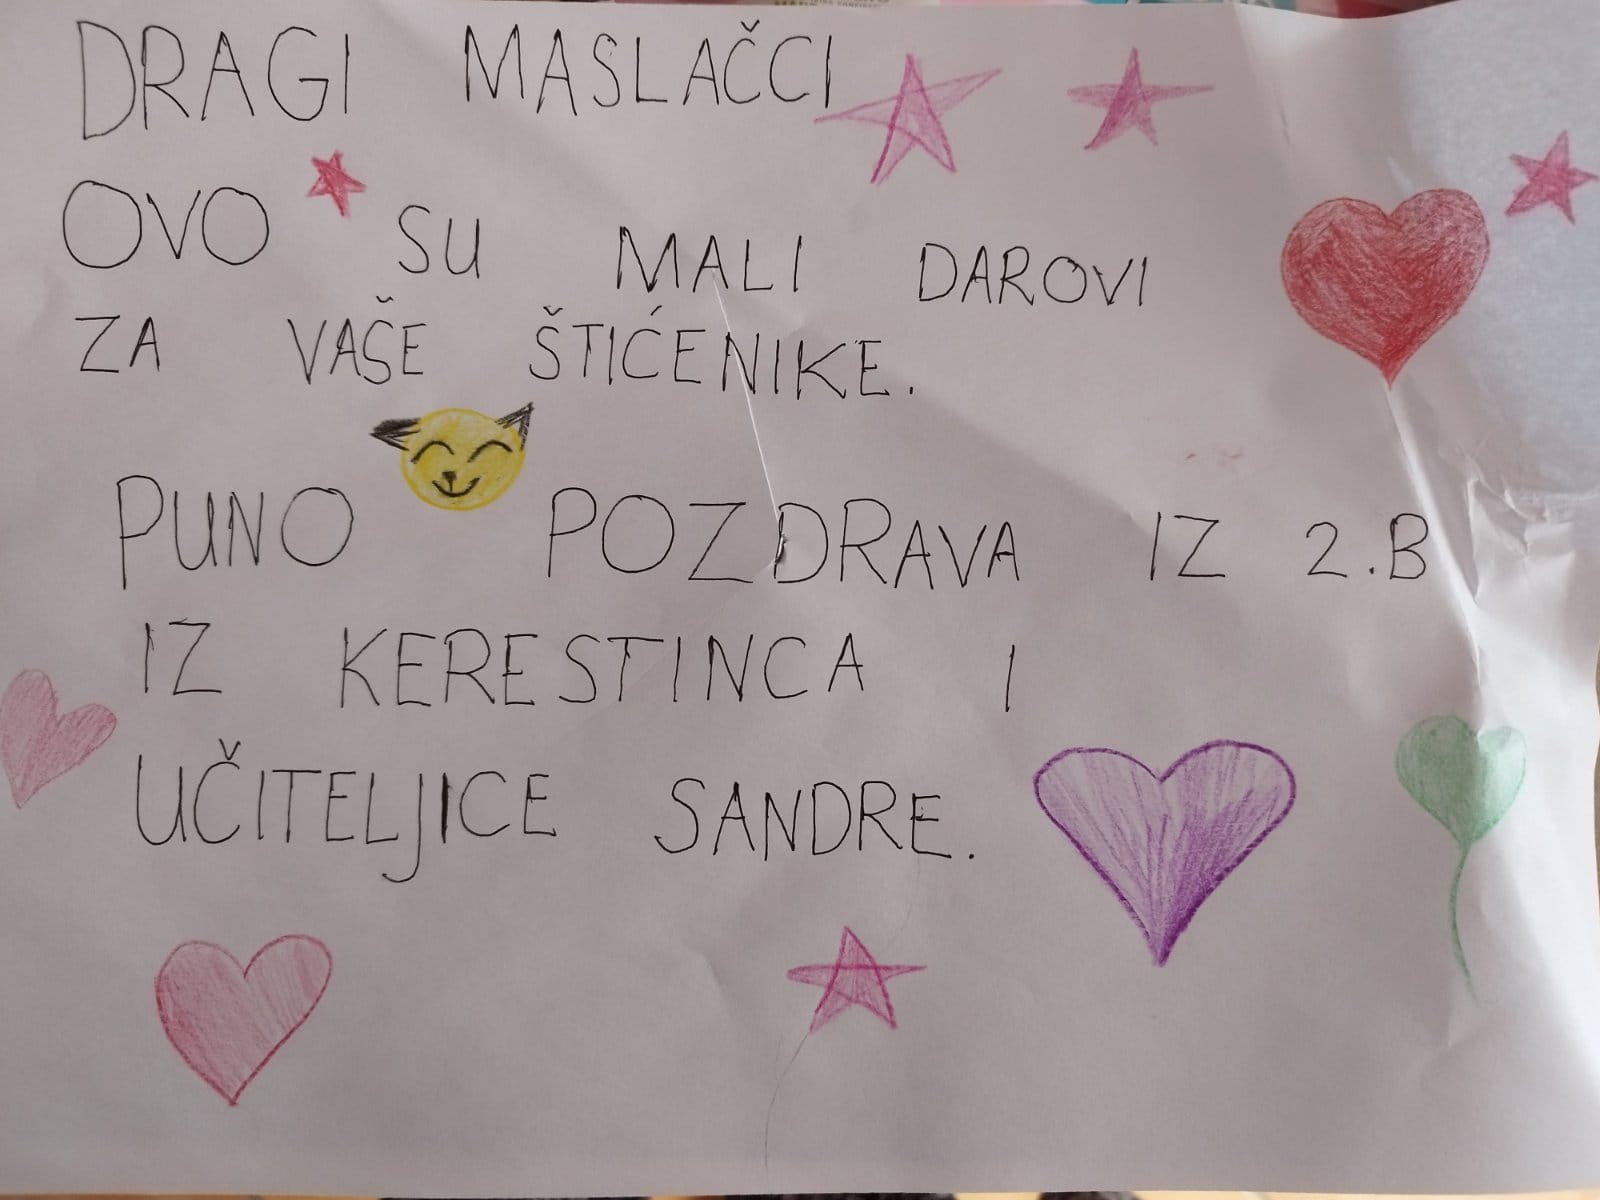 DRAGI MASLAČCI
OVO SU MALI DAROVI
ZA VAŠE ŠTIĆENIKE.
PUNO POZDRAVA IZ 2.B
IZ KERESTINCA I
UČITELJICE SANDRE.